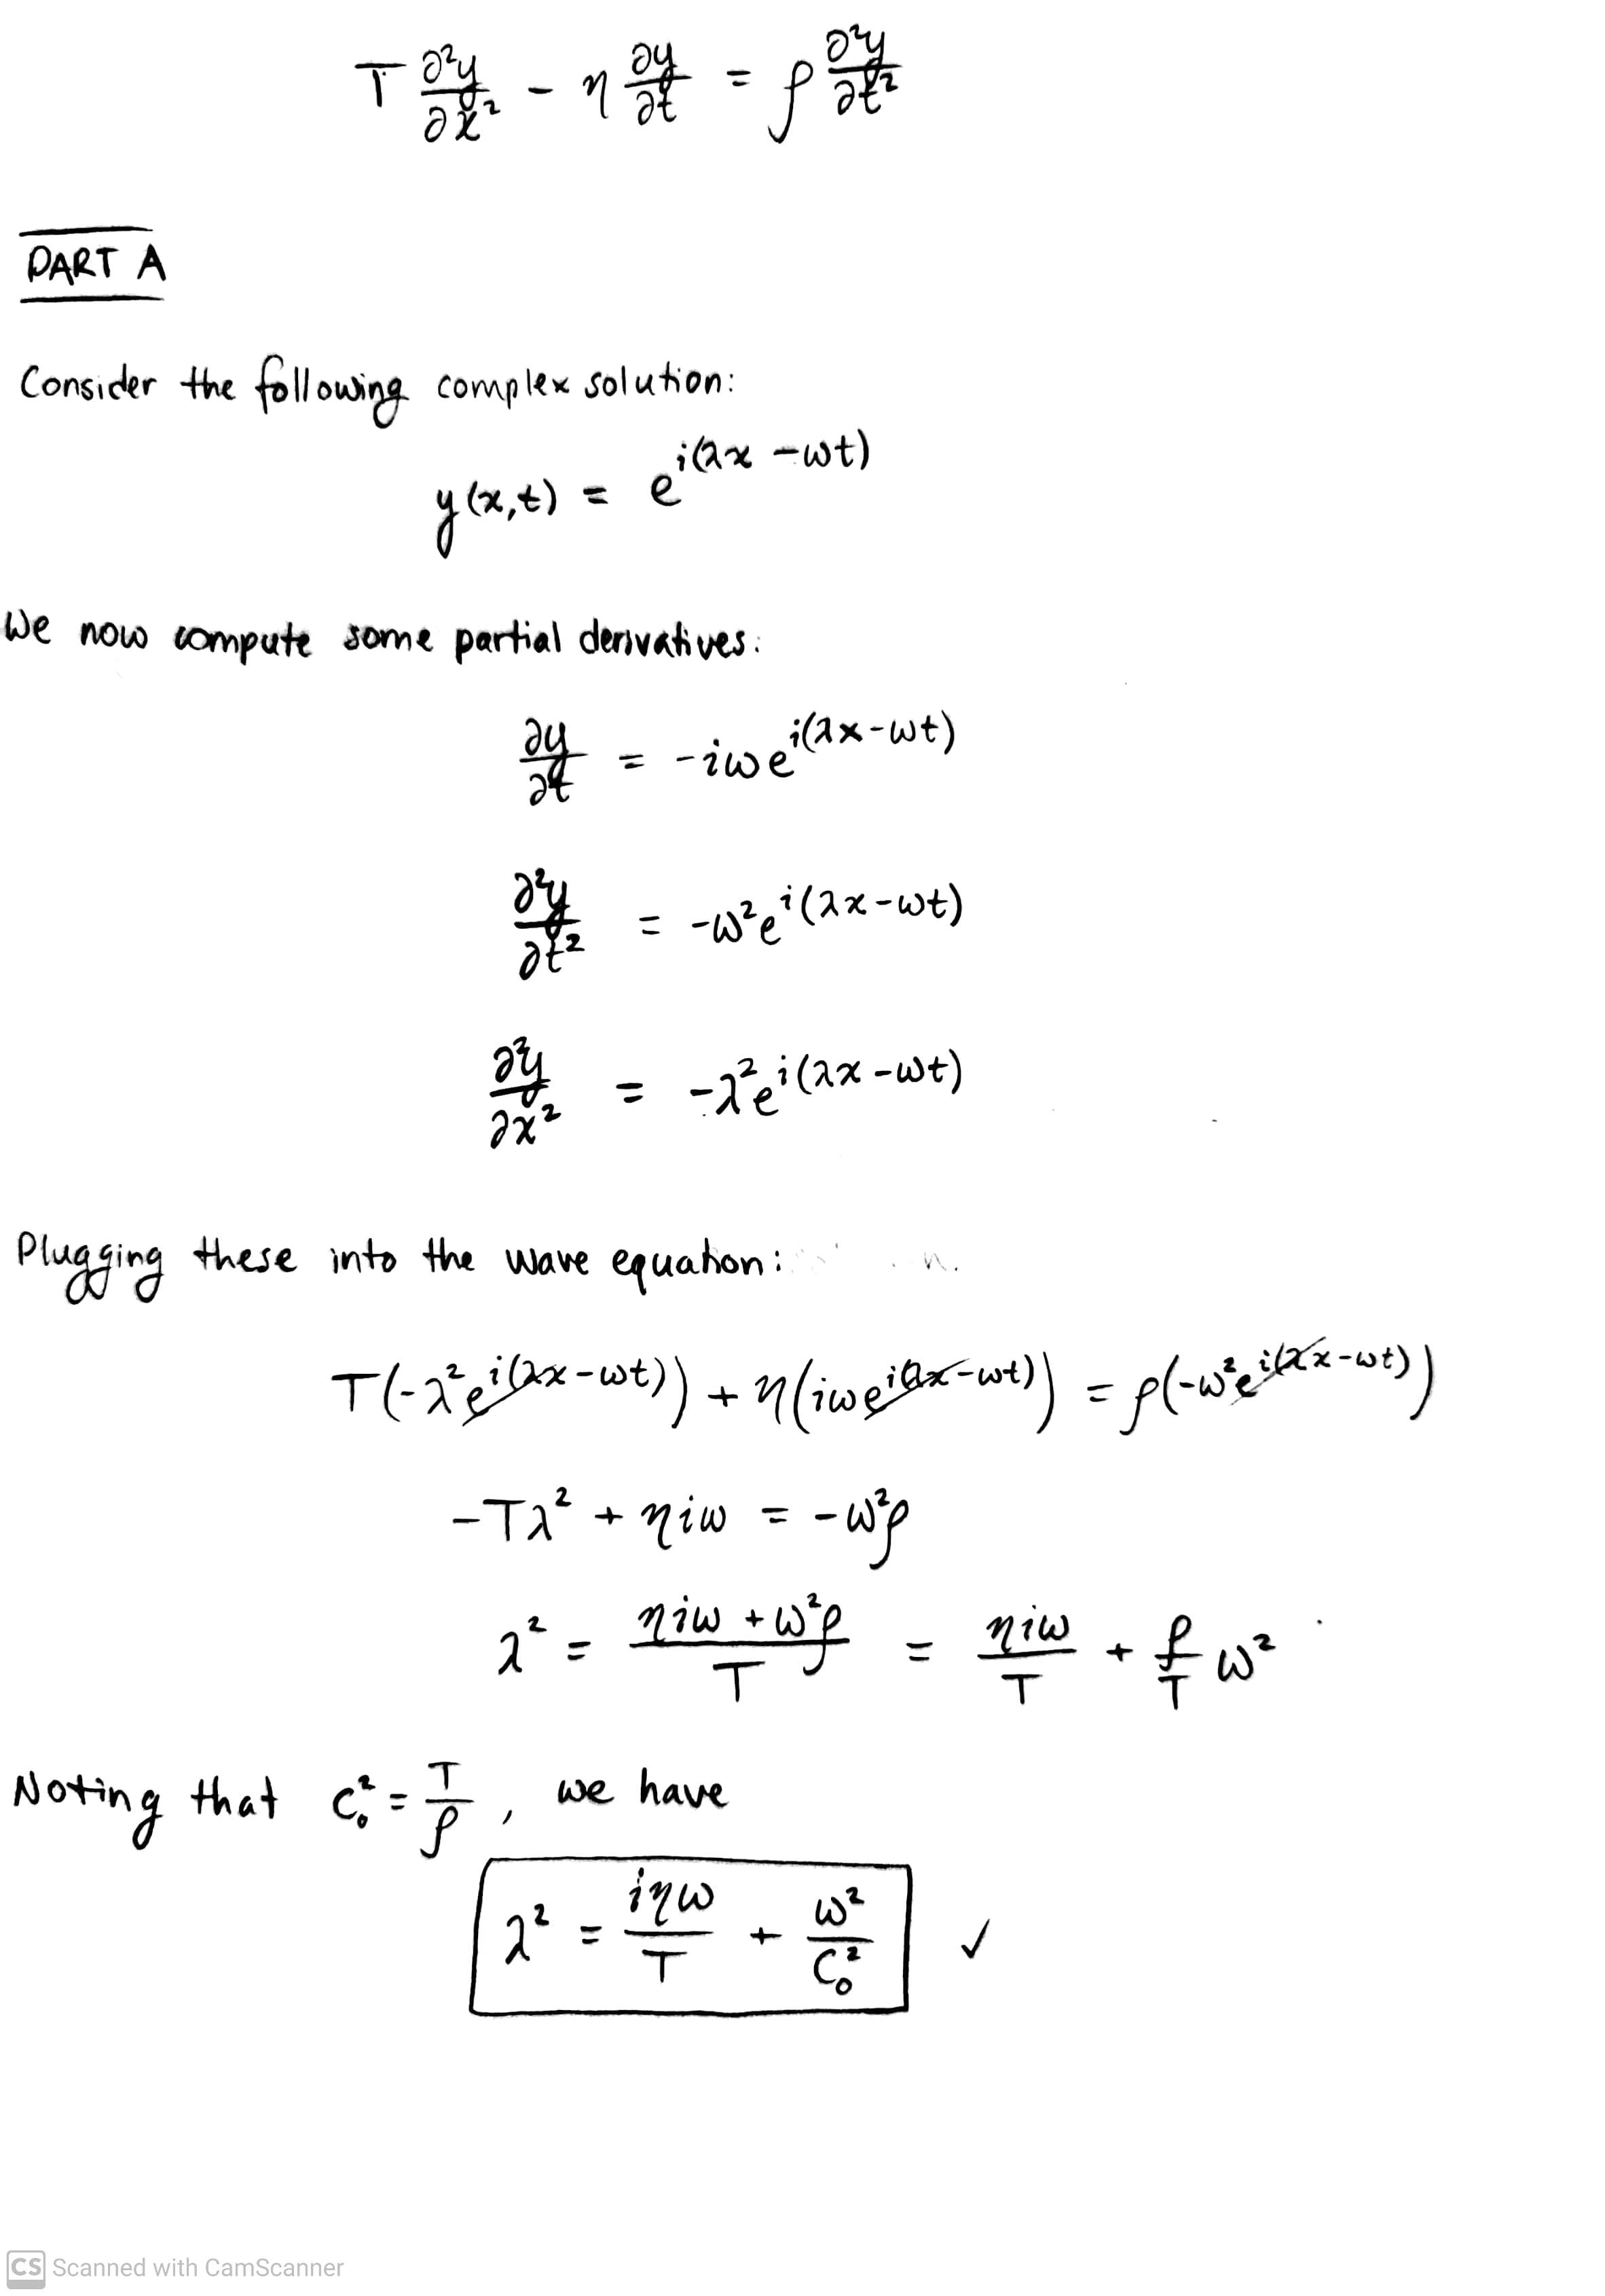 T ∂²y/∂x² - η ∂y/∂t = ρ ∂²y/∂t²
PART A
Consider the following complex solution:
y(x,t) = e^{i(λx - ωt)}
We now compute some partial derivatives:
∂y/∂t = -iωe^{i(λx-ωt)}
∂²y/∂t² = -ω²e^{i(λx-ωt)}
∂²y/∂x² = -λ²e^{i(λx-ωt)}
Plugging these into the wave equation:
T(-λ²e^{i(λx-ωt)}) + η(iωe^{i(λx-ωt)}) = ρ(-ω²e^{i(λx-ωt)})
-Tλ² + ηiω = -ω²ρ
λ² = (ηiω + ω²ρ)/T = ηiω/T + ρ/T ω²
Noting that C₀² = T/ρ, we have
λ² = iηω/T + ω²/C₀² ✓
CS Scanned with CamScanner